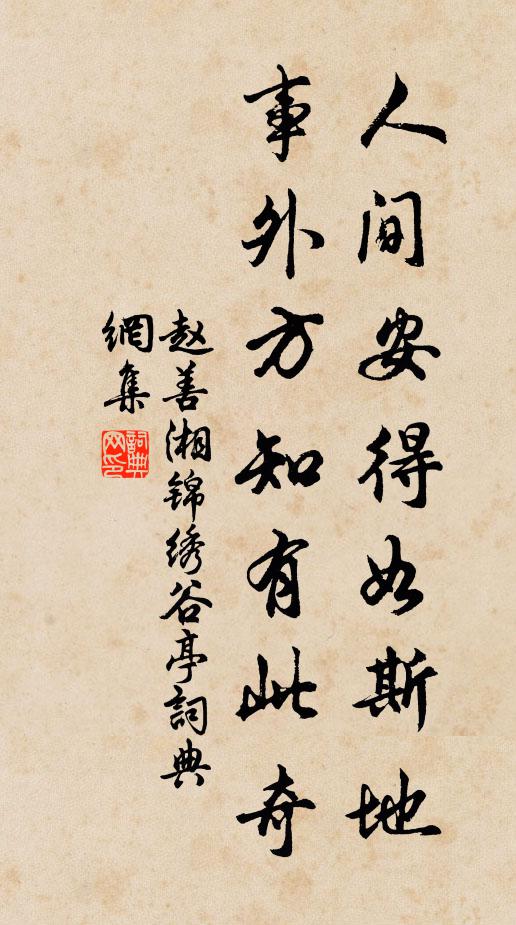 人间安得如斯地
事外方知有此奇
赵善湘锦绣谷亭詞典
網集
詞典
网印